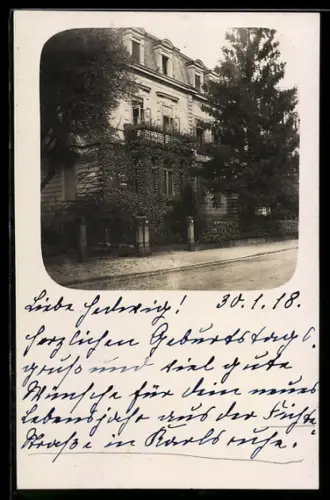 Liebe Hedwig! 30.1.18.
Herzlichen Geburtstags-
gruß und viel gute
Wünsche für dein neues
Lebensjahr aus der Fichte-
Straße in Karlsruhe.